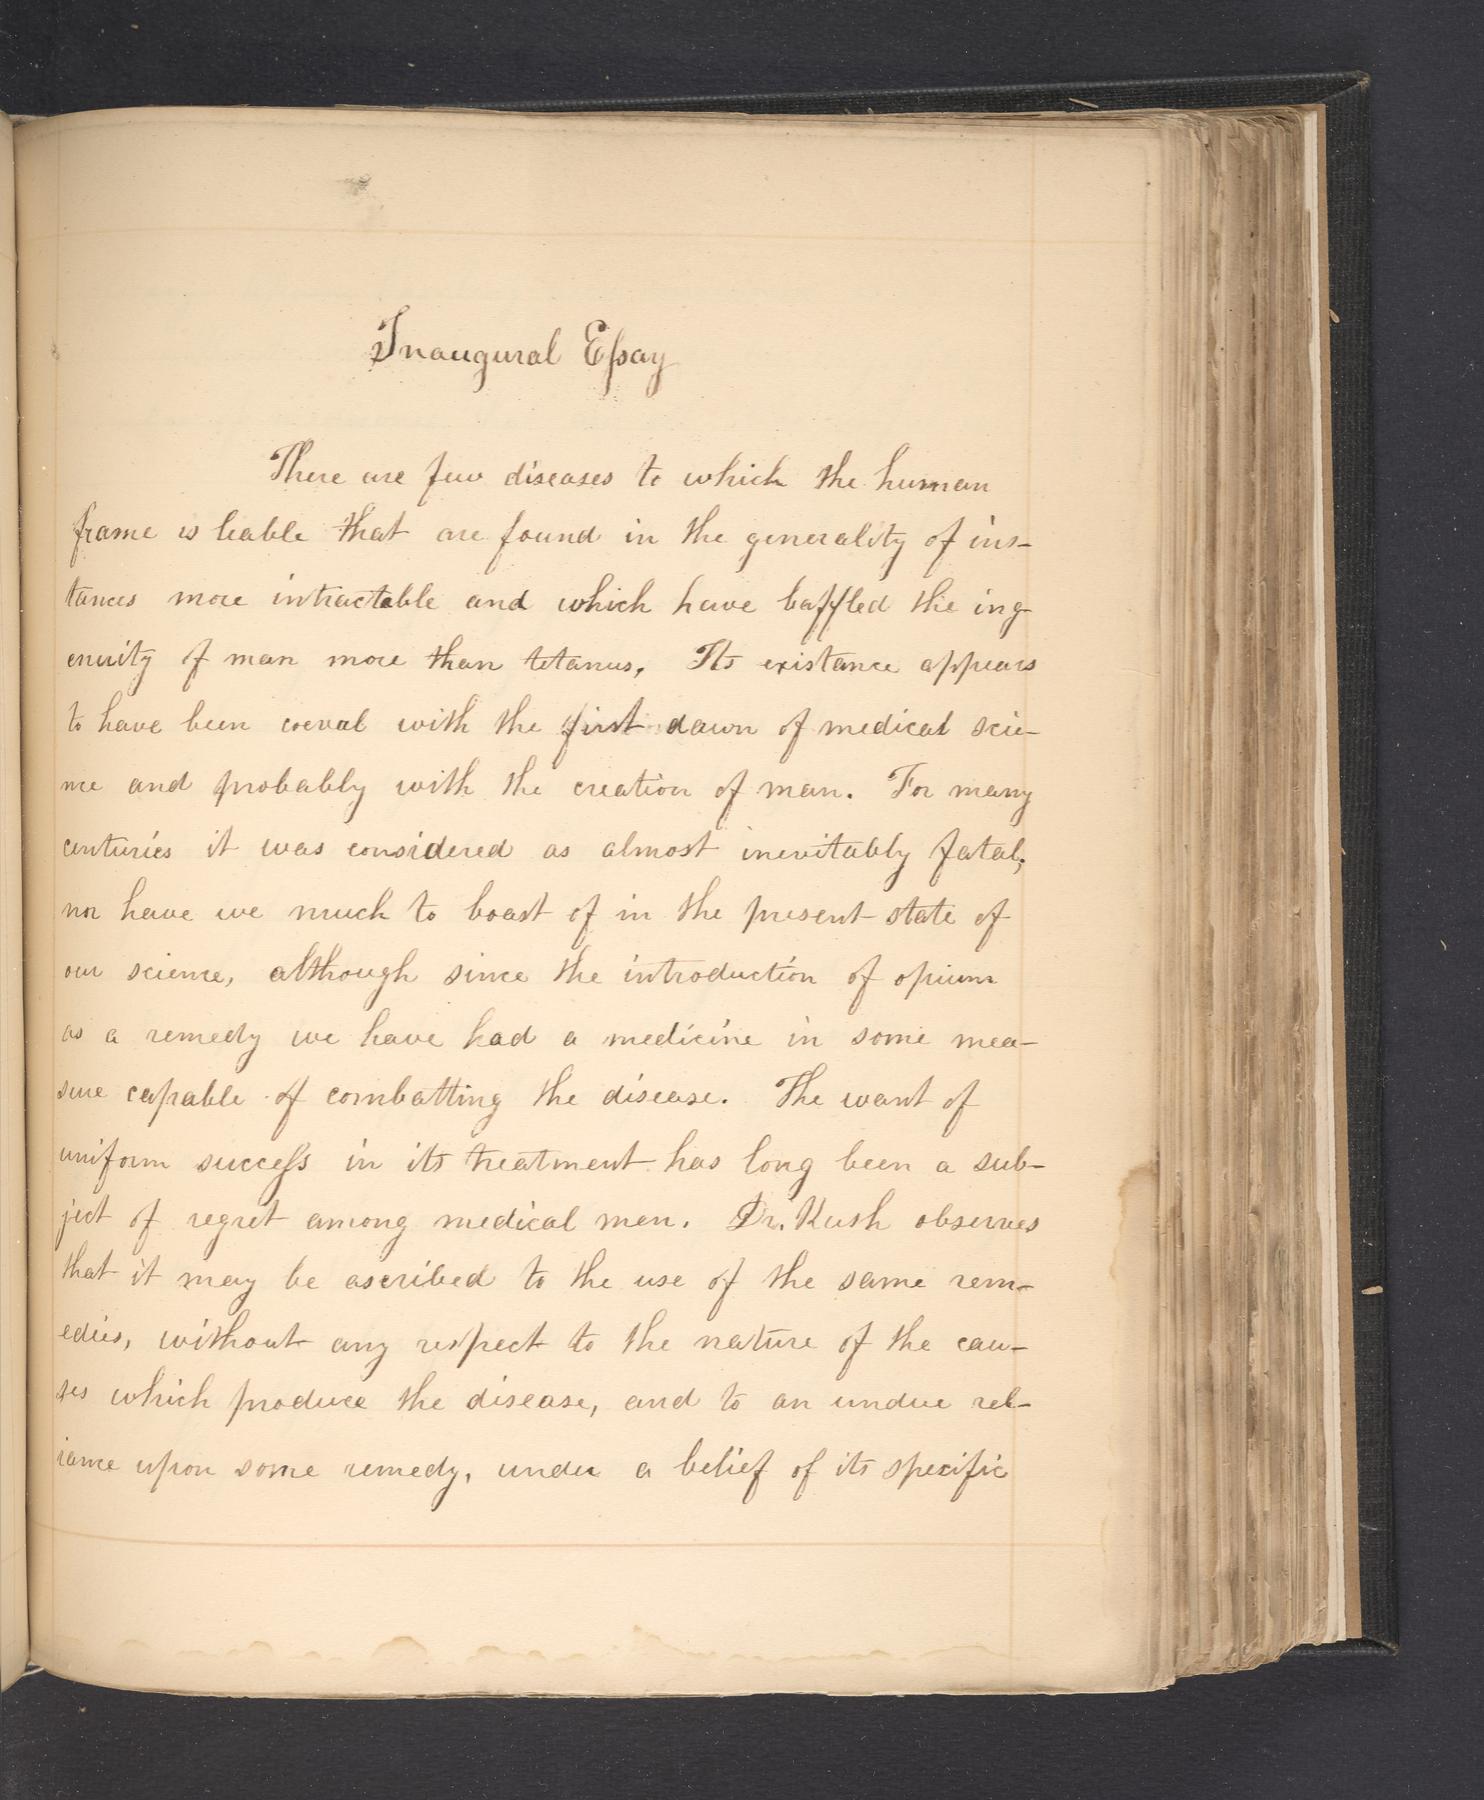 Inaugural Eſsay
There are few diseases to which the human
frame is leable that are found in the generality of ins-
tances more intractable and which have baffled the ing-
enuity of man more than tetanus. Its existance appears
to have been coeval with the first dawn of medical scie-
nce and probably with the creation of man. For many
centuries it was considered as almost inevitably fatal;
nor have we much to boast of in the present state of
our science, although since the introduction of opium
as a remedy we have had a medicine in some mea-
sure capable of combatting the disease. The want of
uniform succeſs in its treatment has long been a sub-
ject of regret among medical men. Dr. Rush observes
that it may be ascribed to the use of the same rem-
edies, without any respect to the nature of the cau-
ses which produce the disease, and to an undue rel-
iance upon some remedy, under a belief of its specific